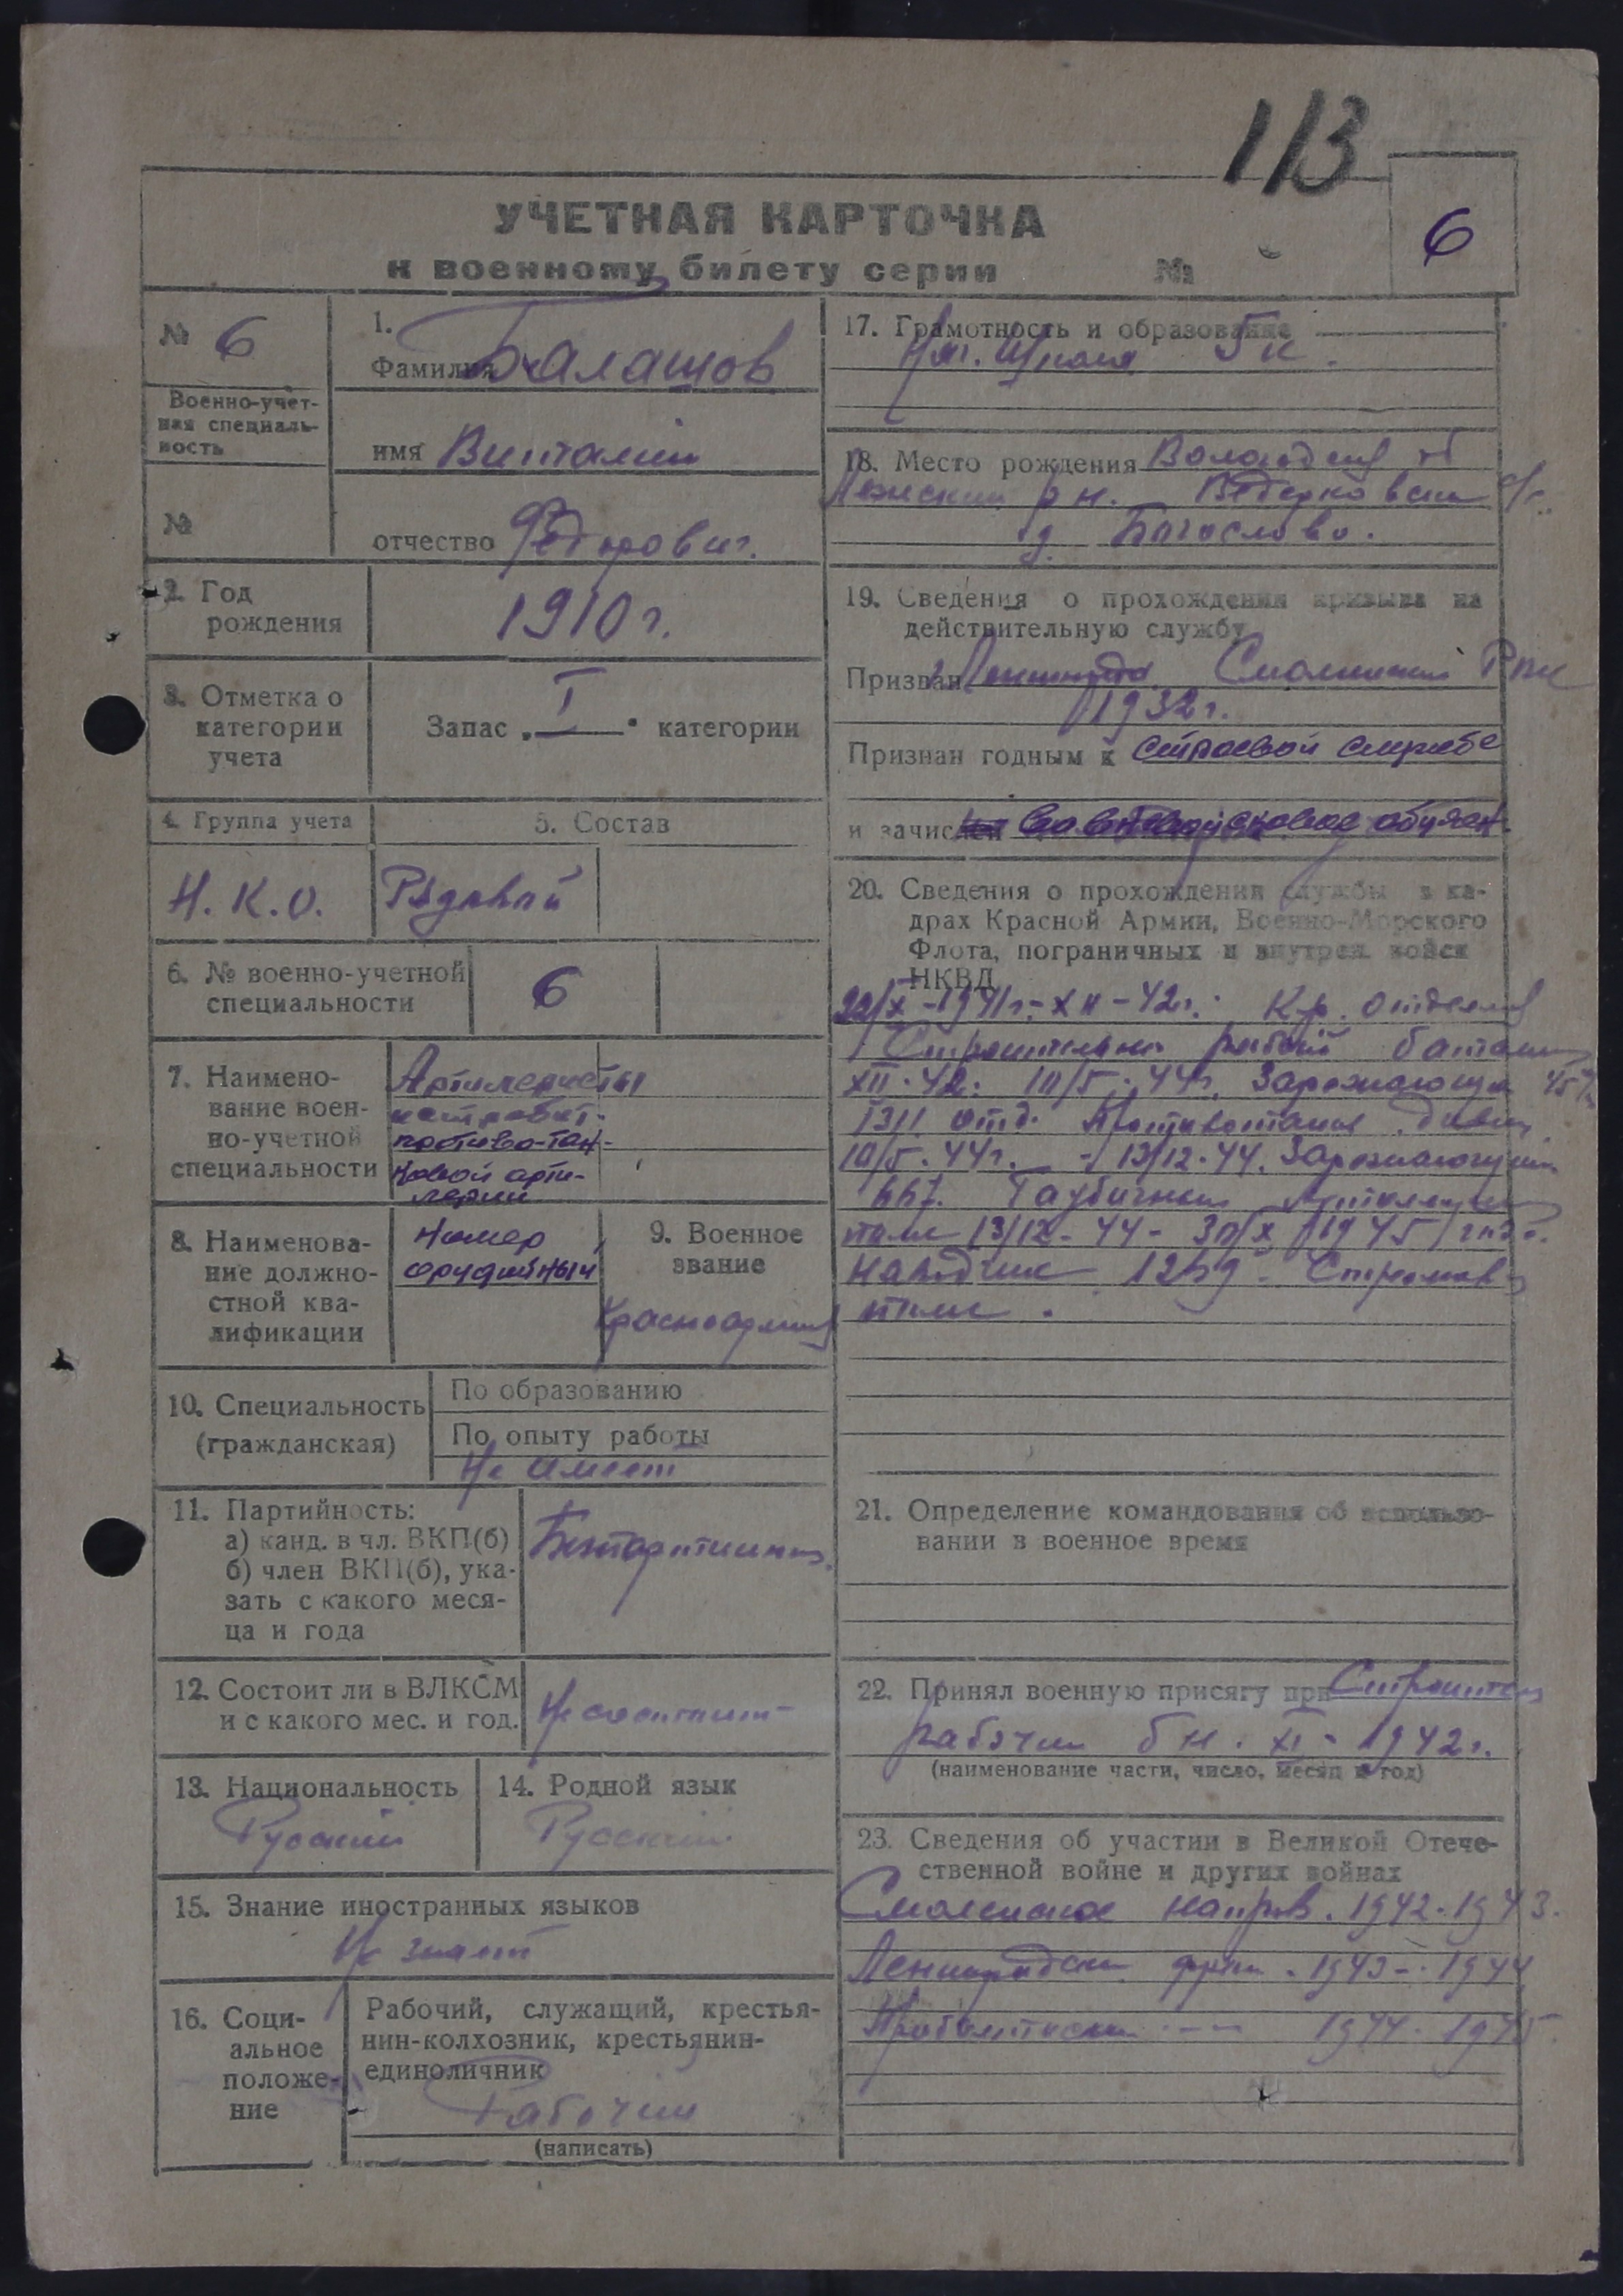 113
УЧЕТНАЯ КАРТОЧКА
к военному билету серии №
6
№ 6
Военно-учет-
ная специаль-
ность
№
1.
Фамилия Балашов
имя Виталий
отчество Федорович.
2. Год
рождения
1910 г.
3. Отметка о
категории
учета
Запас „ I " категории
4. Группа учета
5. Состав
Н.К.О.
Рядовой
6. № военно-учетной
специальности
6
7. Наимено-
вание воен-
но-учетной
специальности
Артилеристы
противо-тан-
ковой арти-
лерии
8. Наименова-
ние должно-
стной ква-
лификации
Номер
орудийный
9. Военное
звание
Красноармеец
10. Специальность
(гражданская)
По образованию
По опыту работы
Не имеет
11. Партийность:
а) канд. в чл. ВКП(б)
б) член ВКП(б), ука-
зать с какого меся-
ца и года
Беспартийный
12. Состоит ли в ВЛКСМ
и с какого мес. и год.
Не состоит
13. Национальность
Русский
14. Родной язык
Русский
15. Знание иностранных языков
Не знает
16. Соци-
альное
положе-
ние
Рабочий, служащий, крестья-
нин-колхозник, крестьянин-
единоличник
Рабочий
(написать)
17. Грамотность и образование
Нач. Школа 5 к.
18. Место рождения Вологодск об
р н. с/с.
д. Богослово.
19. Сведения о прохождении призыва на
действительную службу
Призван Смольнинский РВК
1932 г.
Признан годным к строевой службе
и зачислен
20. Сведения о прохождении службы в ка-
драх Красной Армии, Военно-Морского
Флота, пограничных и внутрен. войск
НКВД
1941 г. - XII - 42 г. Кр.
Строительн рабочий батальон
XII. 42. 10/5. 44 г. Заряжающий 45
отд. Противотанк. дивиз.
10/5. 44 г. - 13/12. 44. Заряжающий
Гаубичный
полк 13/12 - 44 - 30/X 1945
наводчик Стрелков
полк.
21. Определение командования об использо-
вании в военное время
22. Принял военную присягу при Строител
рабочем бн. XI - 1942 г.
(наименование части, число, месяц и год)
23. Сведения об участии в Великой Отече-
ственной войне и других войнах
Смоленское направ. 1942-1943.
Ленинградск фрон. 1943 - 1944
Прибалтиск --- 1944. 1945